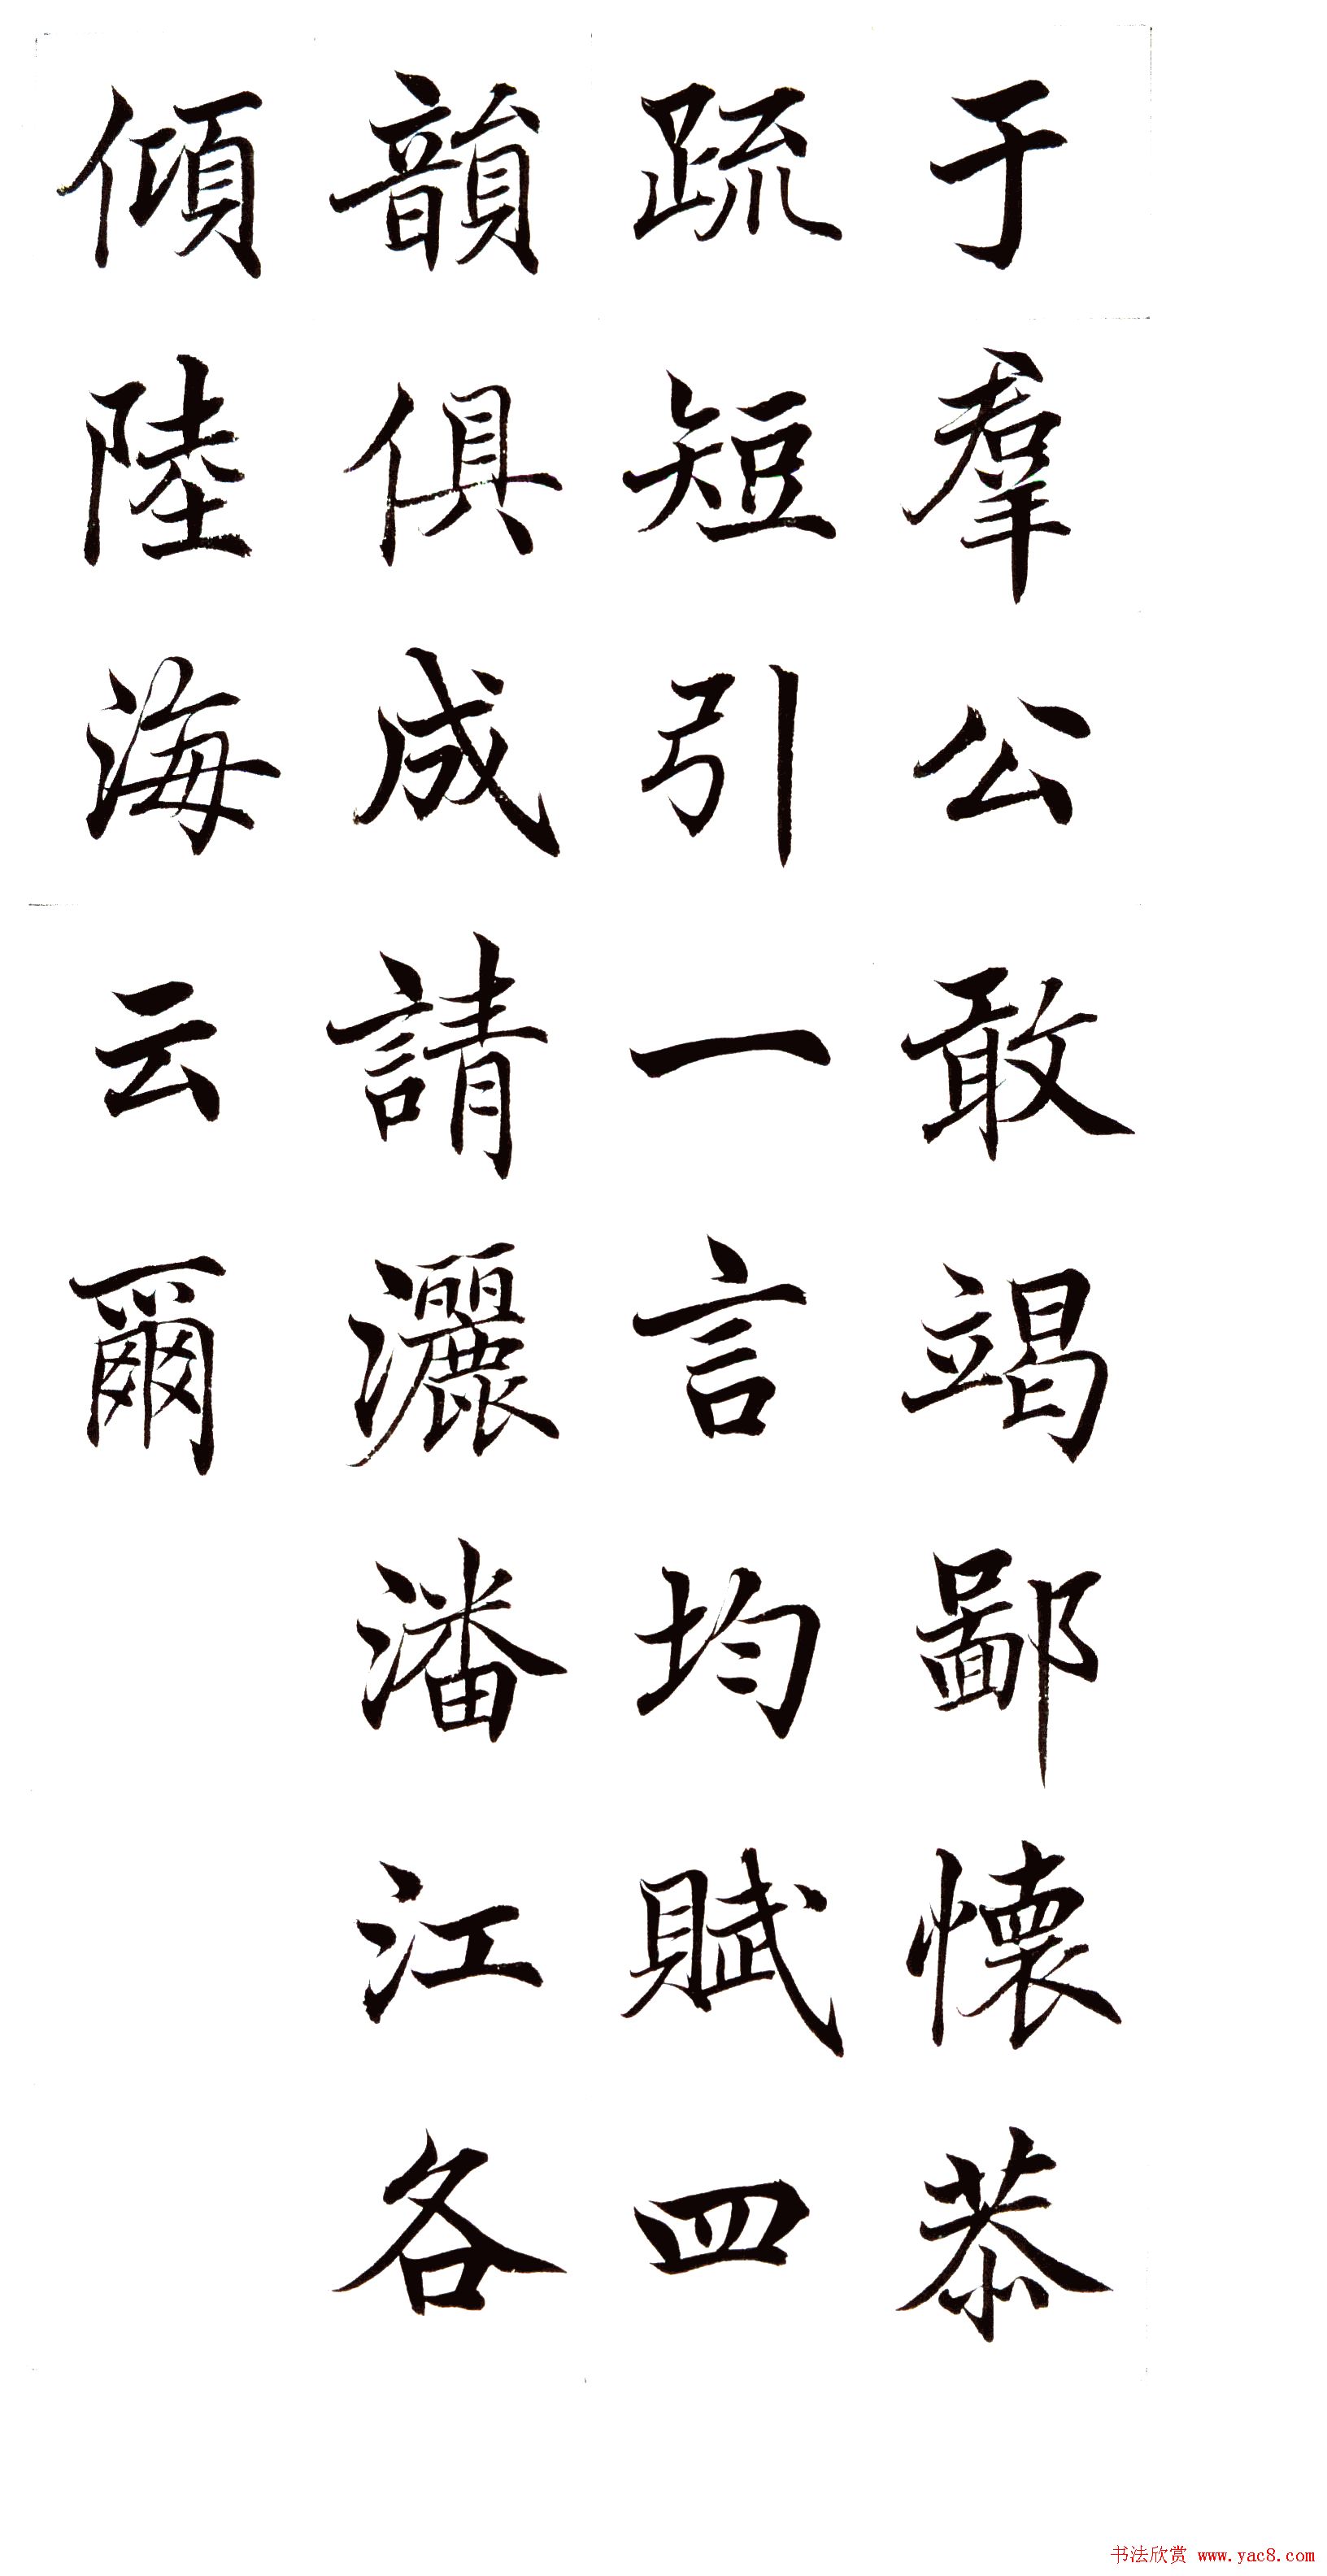 于羣公敢竭鄙懷恭
疏短引一言均賦四
韻俱成請灑潘江各
傾陸海云爾
书法欣赏 www.yac8.com